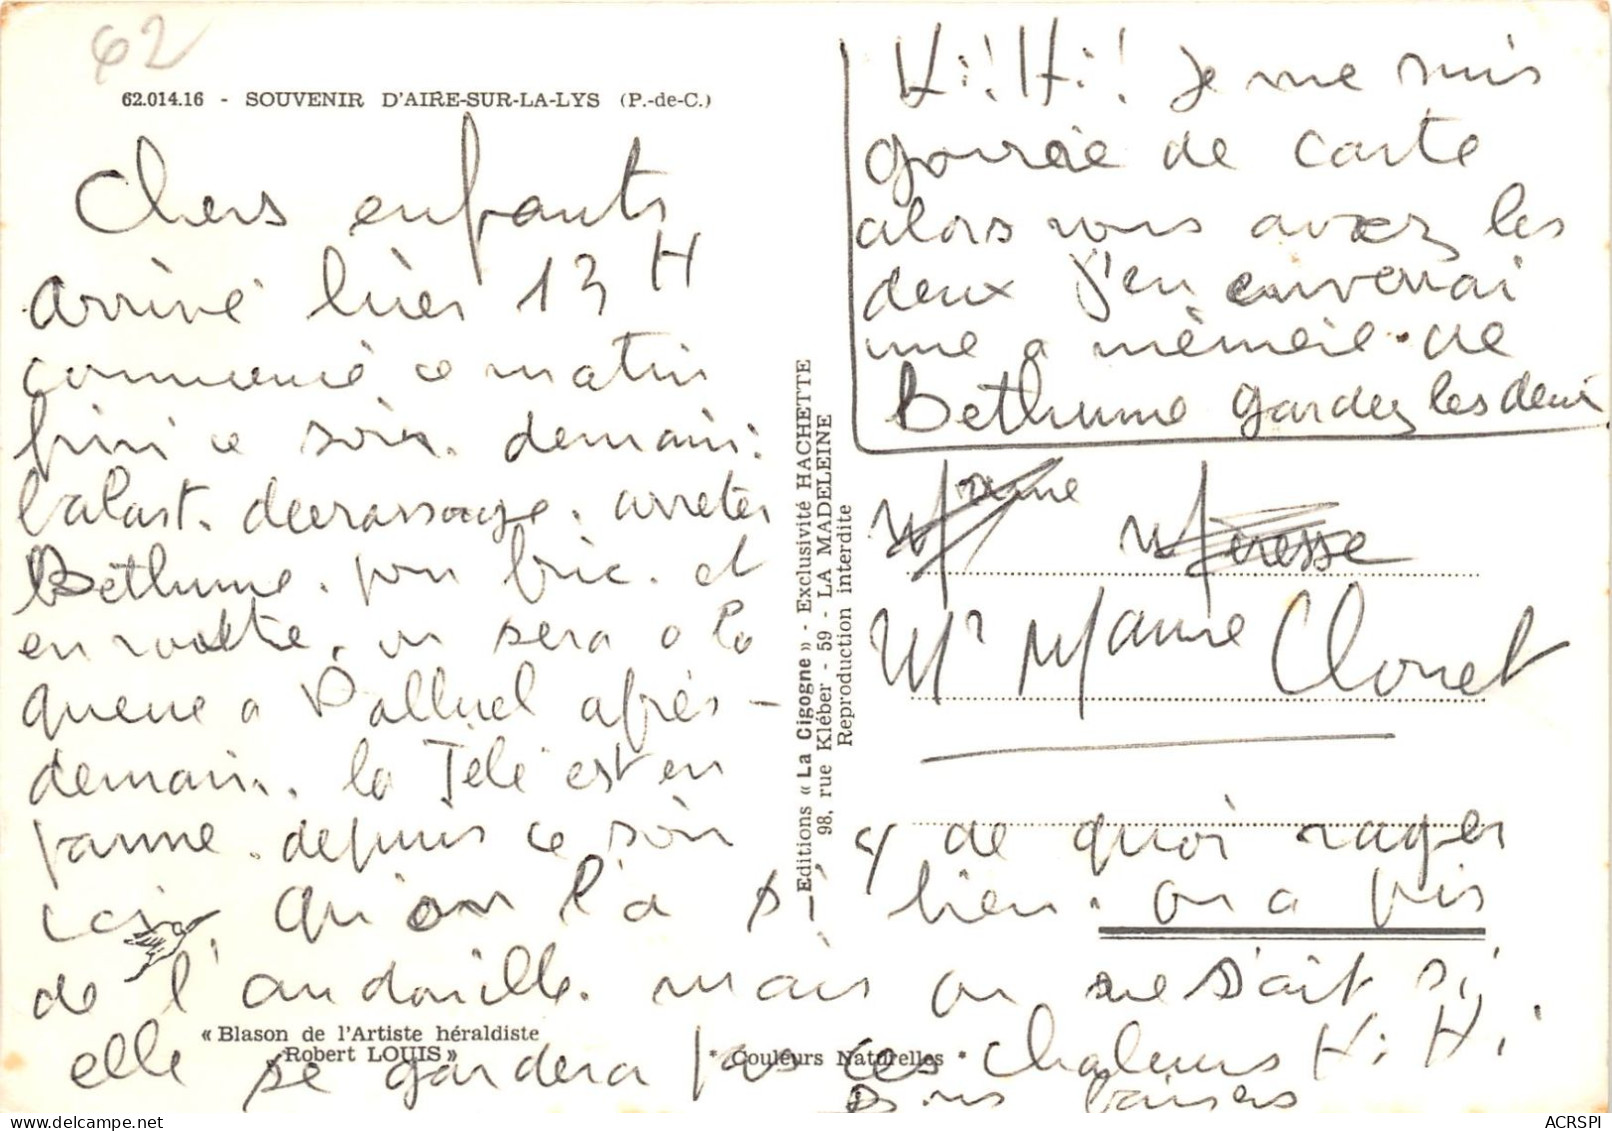 62
62.014.16 - SOUVENIR D'AIRE-SUR-LA-LYS (P.-de-C.)
Chers enfants
arrivé hier 13 H
commencé ce matin
fini ce soir. demain:
balast. decrassage. arreter
Béthune. pour bric. et
en route. on sera a la
queue a Palluel après-
demain. la Télé est en
panne. depuis ce soir
qu'on l'a si
de l'andouille. mais on ne sait si
elle se gardera pas ces chaleurs Hi Hi!
baisers
« Blason de l'Artiste héraldiste
Robert LOUIS »
* Couleurs Naturelles *
Editions « La Cigogne » - Exclusivité HACHETTE
98, rue Kléber - 59 - LA MADELEINE
Reproduction interdite
Hi! Hi! Je me suis
gourée de carte
alors vous avez les
deux J'en enverrai
une a mémère de
Béthune gardez les deux
Mr Mame Clouet
y de quoi rager
bien. on a pris
ACRSPI